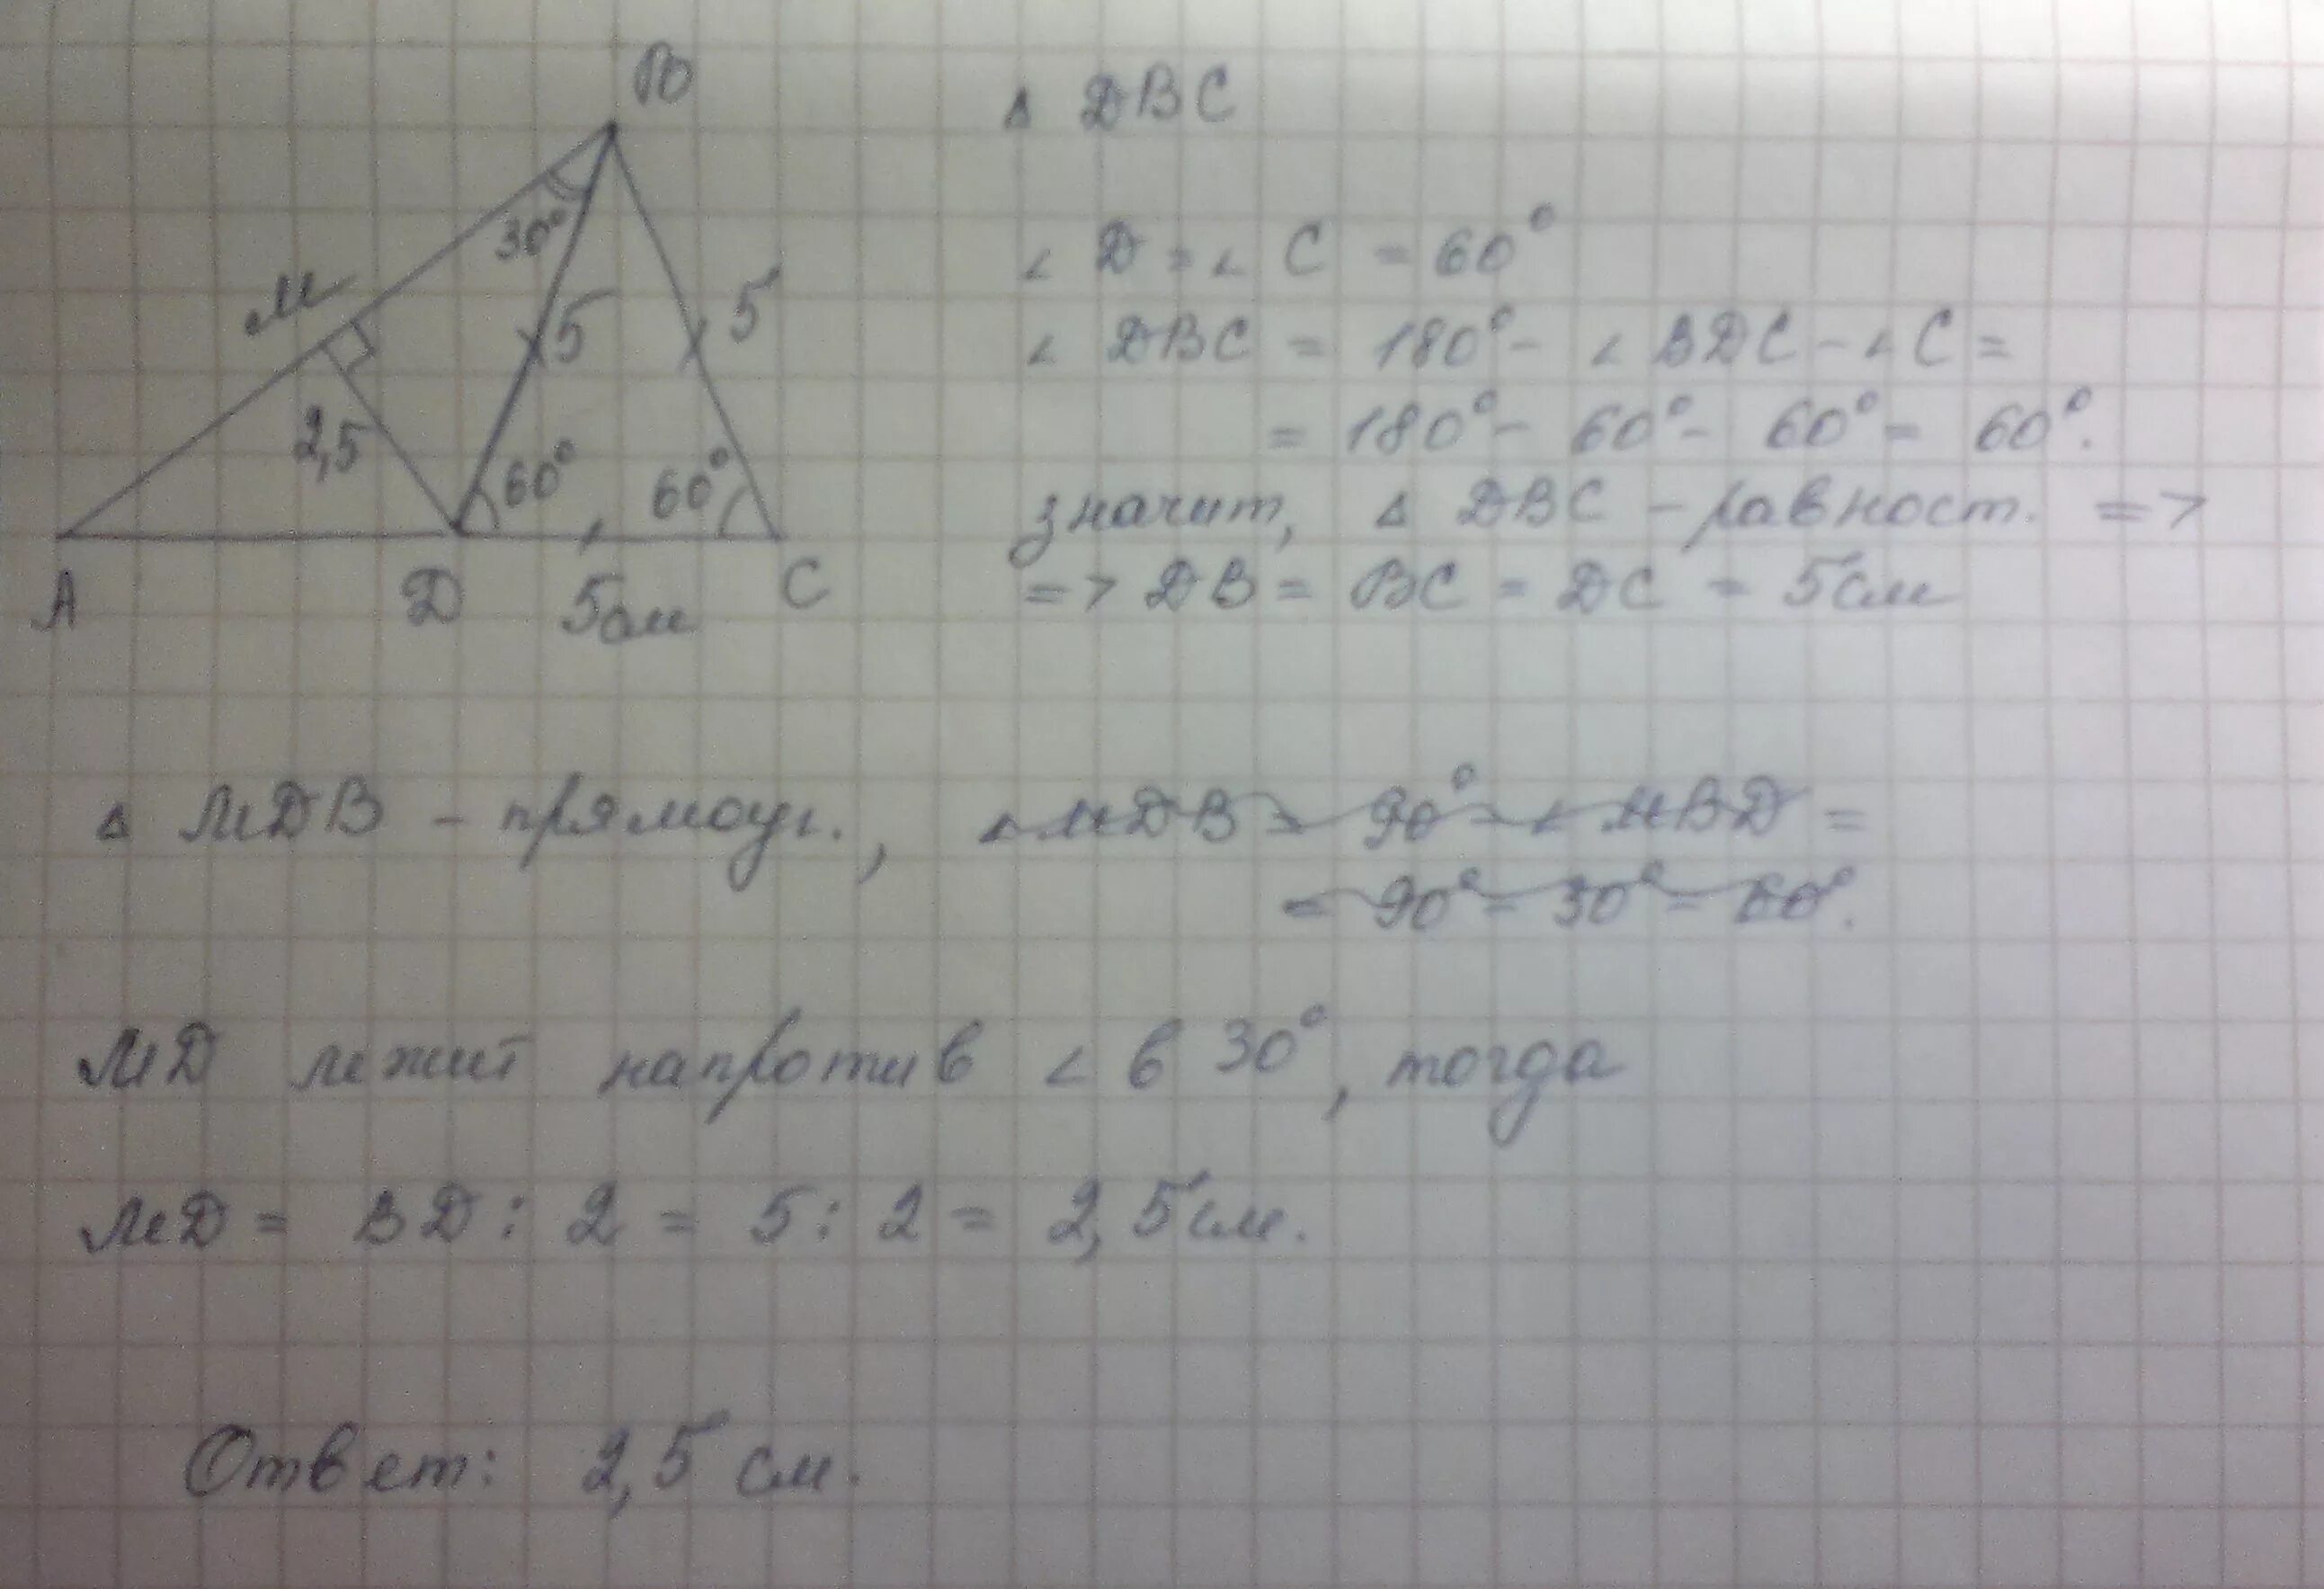 В
30°
М
5
5
2,5
60°
60°
А
D
5см
С
△ DBC
∠ D = ∠ C = 60°
∠ DBC = 180° - ∠ BDC - ∠ C =
= 180° - 60° - 60° = 60°.
значит, △ DBC - равност. =>
=> DB = BC = DC = 5см
△ MDB - прямоуг., ∠MDB = 90° - ∠ MBD =
= 90° - 30° = 60°.
MD лежит напротив ∠ в 30°, тогда
MD = BD : 2 = 5 : 2 = 2,5см.
Ответ: 2,5 см.